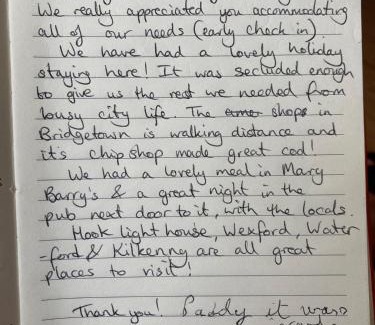 We really appreciated you accommodating
all of our needs (early check in).
We have had a lovely holiday
staying here! It was secluded enough
to give us the rest we needed from
busy city life. The shops in
Bridgetown is walking distance and
it's chip shop made great cod!
We had a lovely meal in Mary
Barry's & a great night in the
pub next door to it, with the locals.
Hook light house, Wexford, Water
-ford & Kilkenny are all great
places to visit!
Thank you! Paddy it was